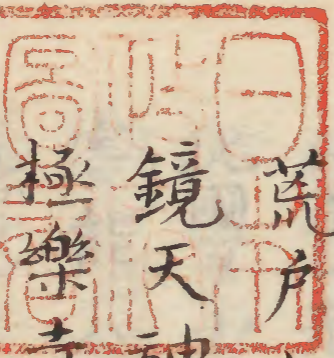 荒戸
鏡天神
極樂寺